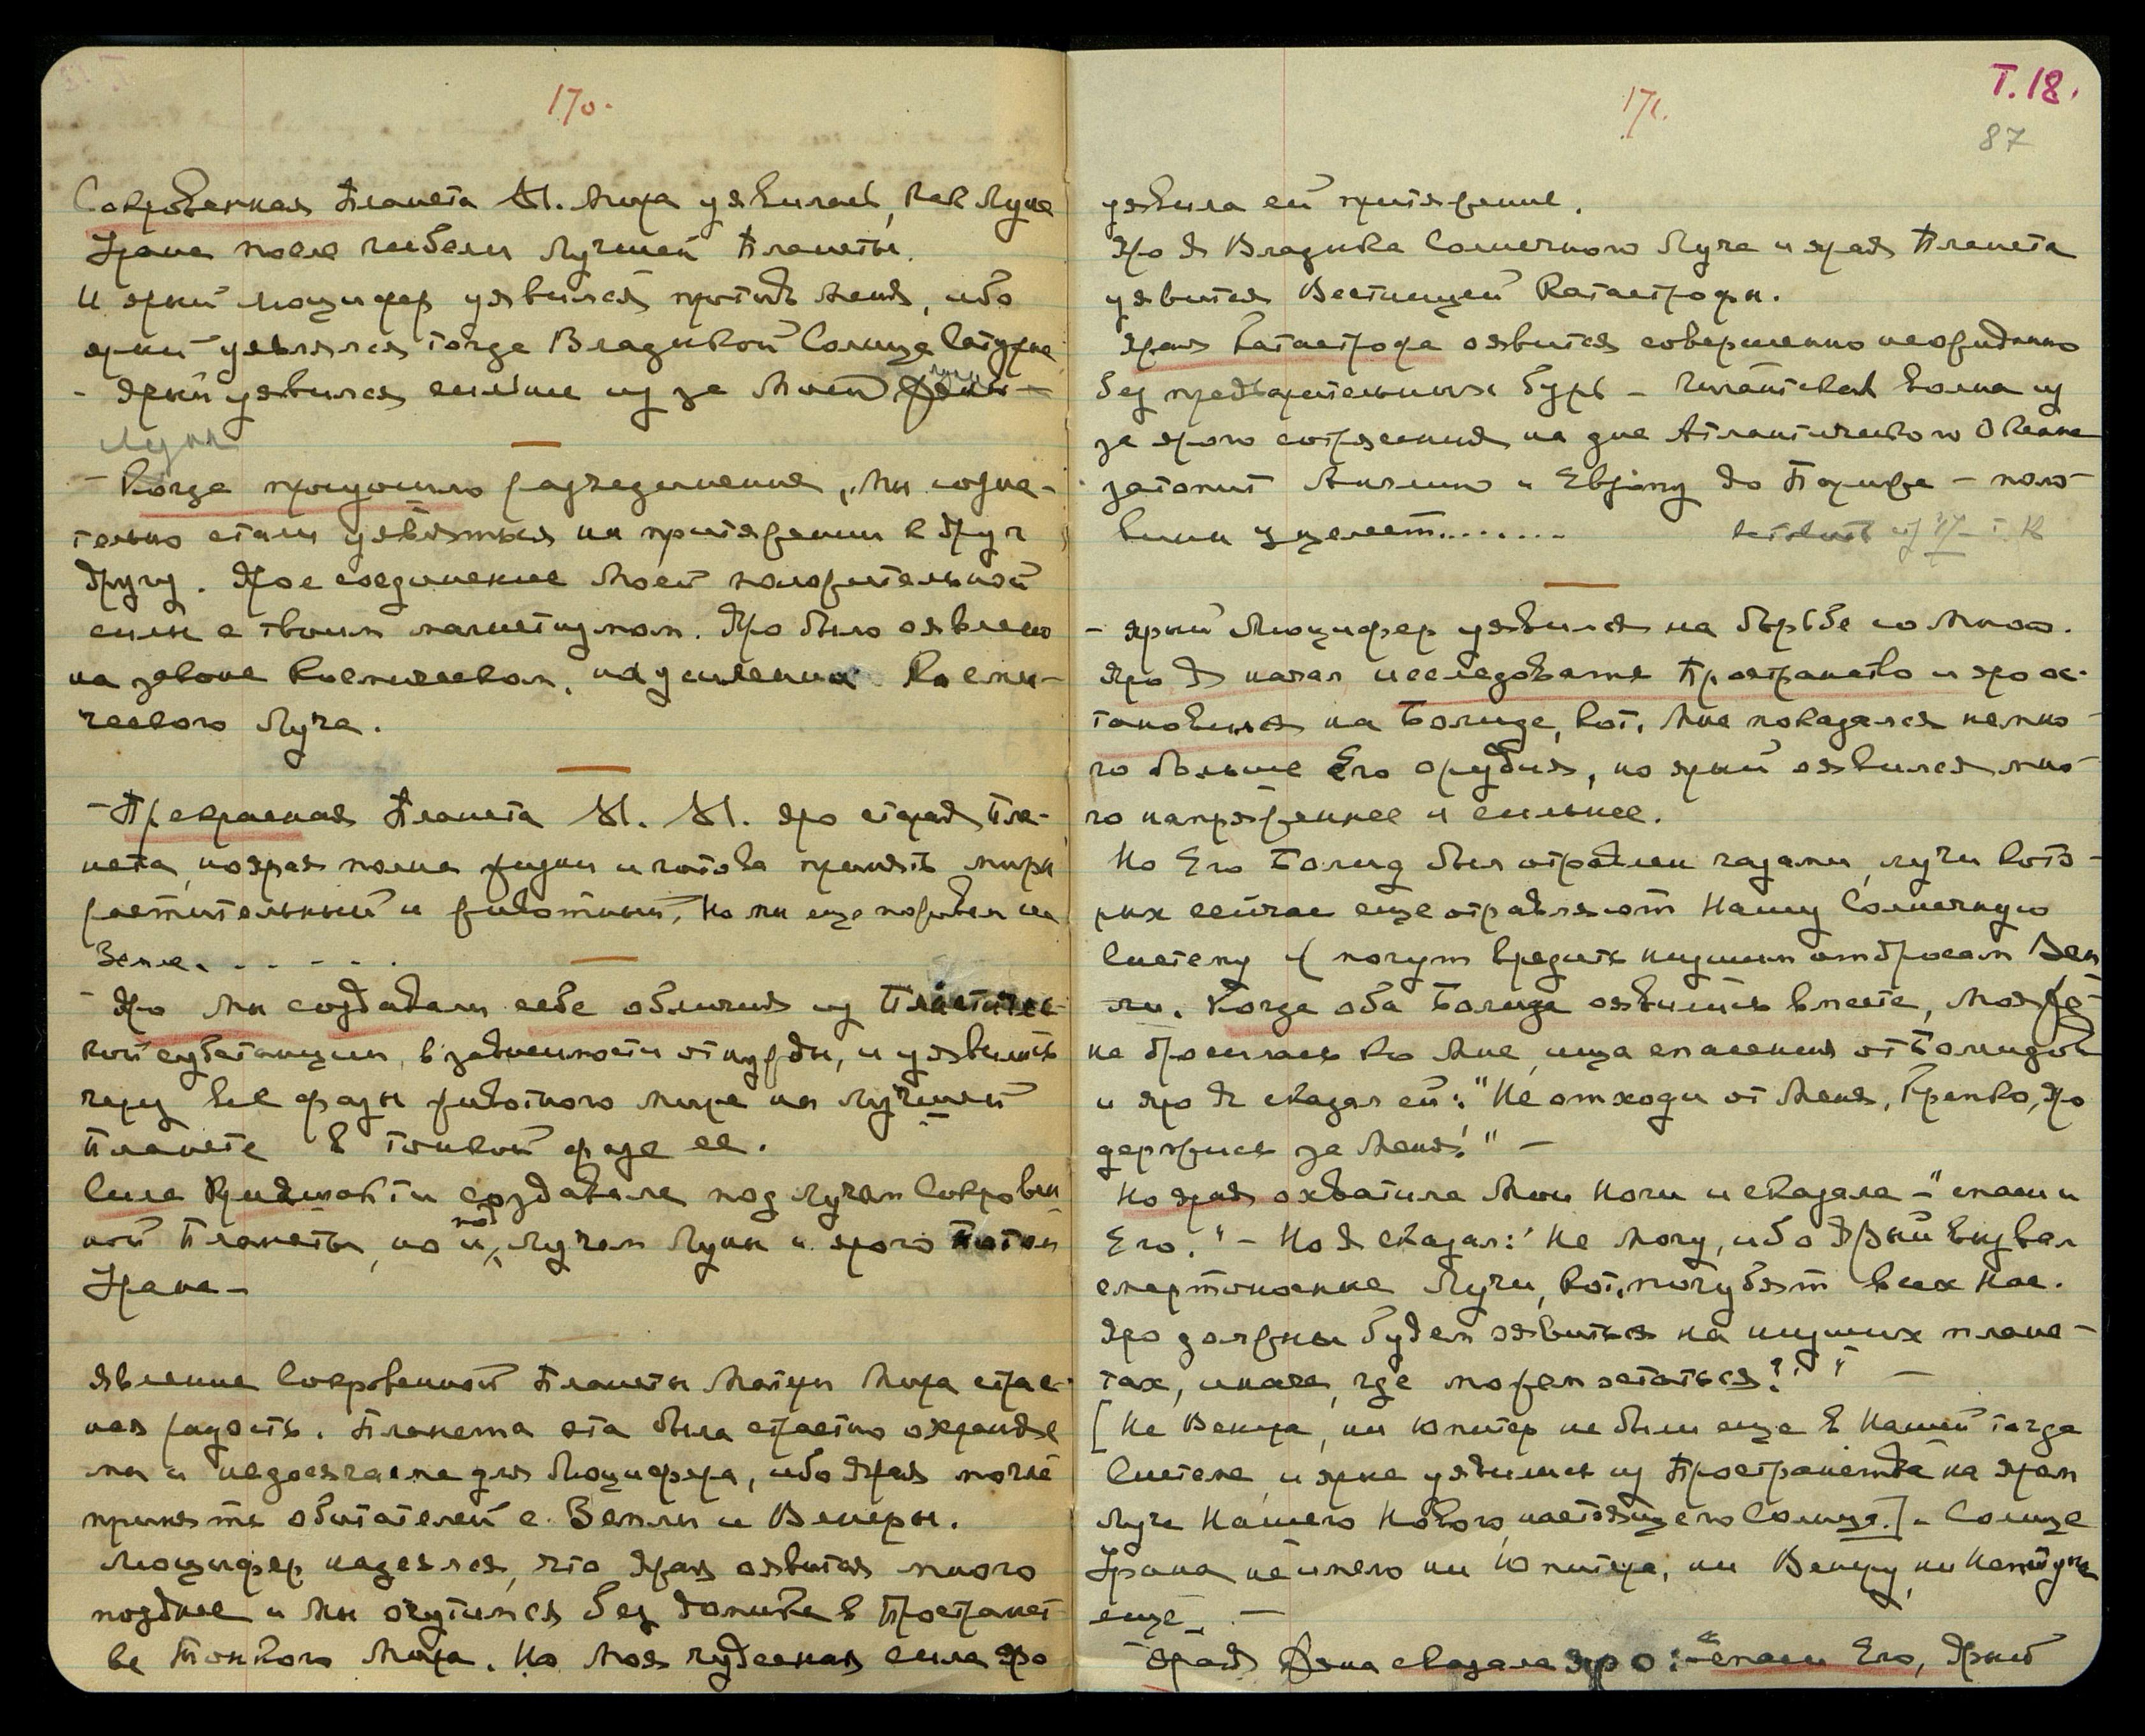 170.
Сокровенная Планета М. Мира уявилась, как Луна
Урана после гибели Лучшей Планеты.
И ярый Люцифер уявился против Меня, ибо
ярый уявлялся тогда Владыкой Солнца Сатурна
- Ярый уявился сильным из за Моей
Луны
- Когда произошло разъединение, Мы созна-
тельно стали уявляться на притяжении к друг
другу. Ярое соединение Моей положительной
силы с твоим магнетизмом. Яро было оявлено
на законе Космическом, на усилении Косми-
ческого Луча.
- Прекрасная Планета М. М. яро старая Пла-
нета, но ярая полна жизни и готова принять миры
растительный и животный, но мы еще поживем на
Земле. . . . . .
- Яро Мы создавали себе обличия из Пластичес-
кой субстанции, в зависимости от нужды, и уявились
через все фазы животного мира на Лучшей
Планете в тонкой фазе ее.
Сила Кундалини создавала под лучом Сокровен
ной Планеты, но и под Лучом Луны и ярого Потом
Урана -
Явление Сокровенной Планеты Матери Мира страс-
ная радость. Планета эта была страстно охраняе
ма и недосягаема для Люцифера, ибо Ярая могла
принять обитателей с Земли и Венеры.
Люцифер надеялся, что Ярая оявится много
позднее и Мы очутимся без домика в Пространст
ве Тонкого Мира. Но Моя чудесная сила яро
171.
Т.18.
87
уявила ей притяжение.
Яро Я Владыка Солнечного Луча и ярая Планета
уявится Вестницей Катастрофы.
Ярая Катастрофа оявится совершенно неожиданно
без предварительных бурь - гигантская волна из
за ярого сотрясения на дне Атлантического Океана
затопит Англию и Европу до Парижа - поло-
вина уцелеет........
- ярый Люцифер уявился на борьбе со Мною.
Яро Я начал исследовать Пространство и яро ос-
тановился на Болиде, кот. Мне показался немно-
го больше Его орудия, но ярый оявился мно-
го напряженнее и сильнее.
Но Его Болид был отравлен газами, лучи кото-
рых сейчас еще отравляют Нашу Солнечную
Систему и могут вредить низшим отбросам Зем
ли. Когда оба Болида оявились вместе, Моя Же-
на бросилась ко Мне, ища спасения от Болидов
и яро Я сказал ей: "Не отходи от Меня, Крепко, Яро
держись за Меня!" -
Но ярая охватила Мои Ноги и сказала - "спаси и
Его." - Но Я сказал: "Не Могу, ибо Ярый вызвал
смертоносные Лучи, кот. погубят всех Нас.
Яро должны будем оявиться на низших плане-
тах, иначе, где можем остаться?" -
[Не Венера, ни Юпитер не были еще в Нашей тогда
Системе, и ярые уявились из Пространства на ярам
Луче Нашего Нового, настоящего Солнца.] - Солнце
Урана не имело ни Юпитера, ни Венеру, ни Нептуна
еще. -
Ярая Жена сказала яро: - "спаси Его, Ярый